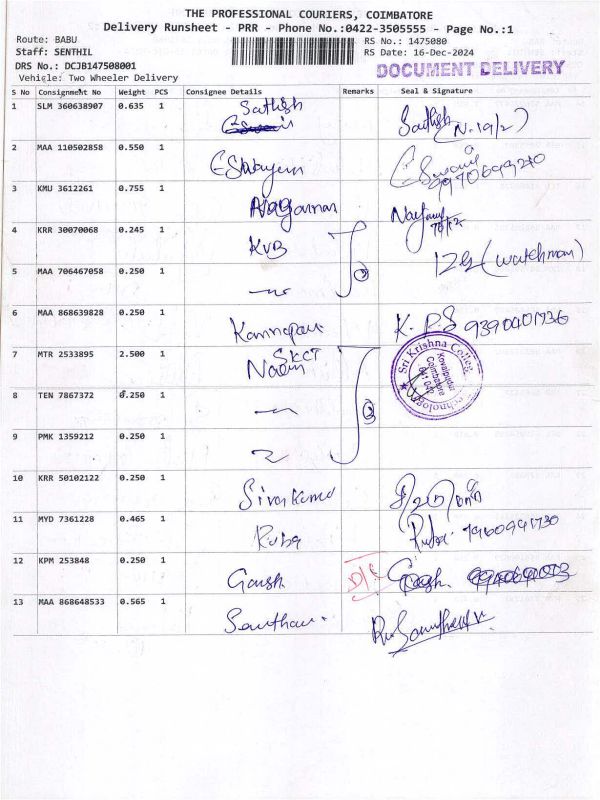 THE PROFESSIONAL COURIERS, COIMBATORE
Delivery Runsheet - PRR - Phone No.:0422-3505555 - Page No.:1
Route: BABU
Staff: SENTHIL
DRS No.: DCJB147508001
Vehicle: Two Wheeler Delivery
RS No.: 1475080
RS Date: 16-Dec-2024
DOCUMENT DELIVERY
S No Consignment No Weight PCS Consignee Details Remarks Seal & Signature
1 SLM 360638907 0.635 1 Sathish Sathish (N.19/2)
2 MAA 110502858 0.550 1
3 KMU 3612261 0.755 1
4 KRR 30070068 0.245 1 KVB 129 (watchman)
5 MAA 706467058 0.250 1
6 MAA 868639828 0.250 1 K.P.S
7 MTR 2533895 2.500 1 SKCT
Sri Krishna College Technology
Kovaipudur
Coimbatore
641 042
8 TEN 7867372 0.250 1
9 PMK 1359212 0.250 1
10 KRR 50102122 0.250 1 Sivakumar
11 MYD 7361228 0.465 1 Ruba
12 KPM 253848 0.250 1
13 MAA 868648533 0.565 1